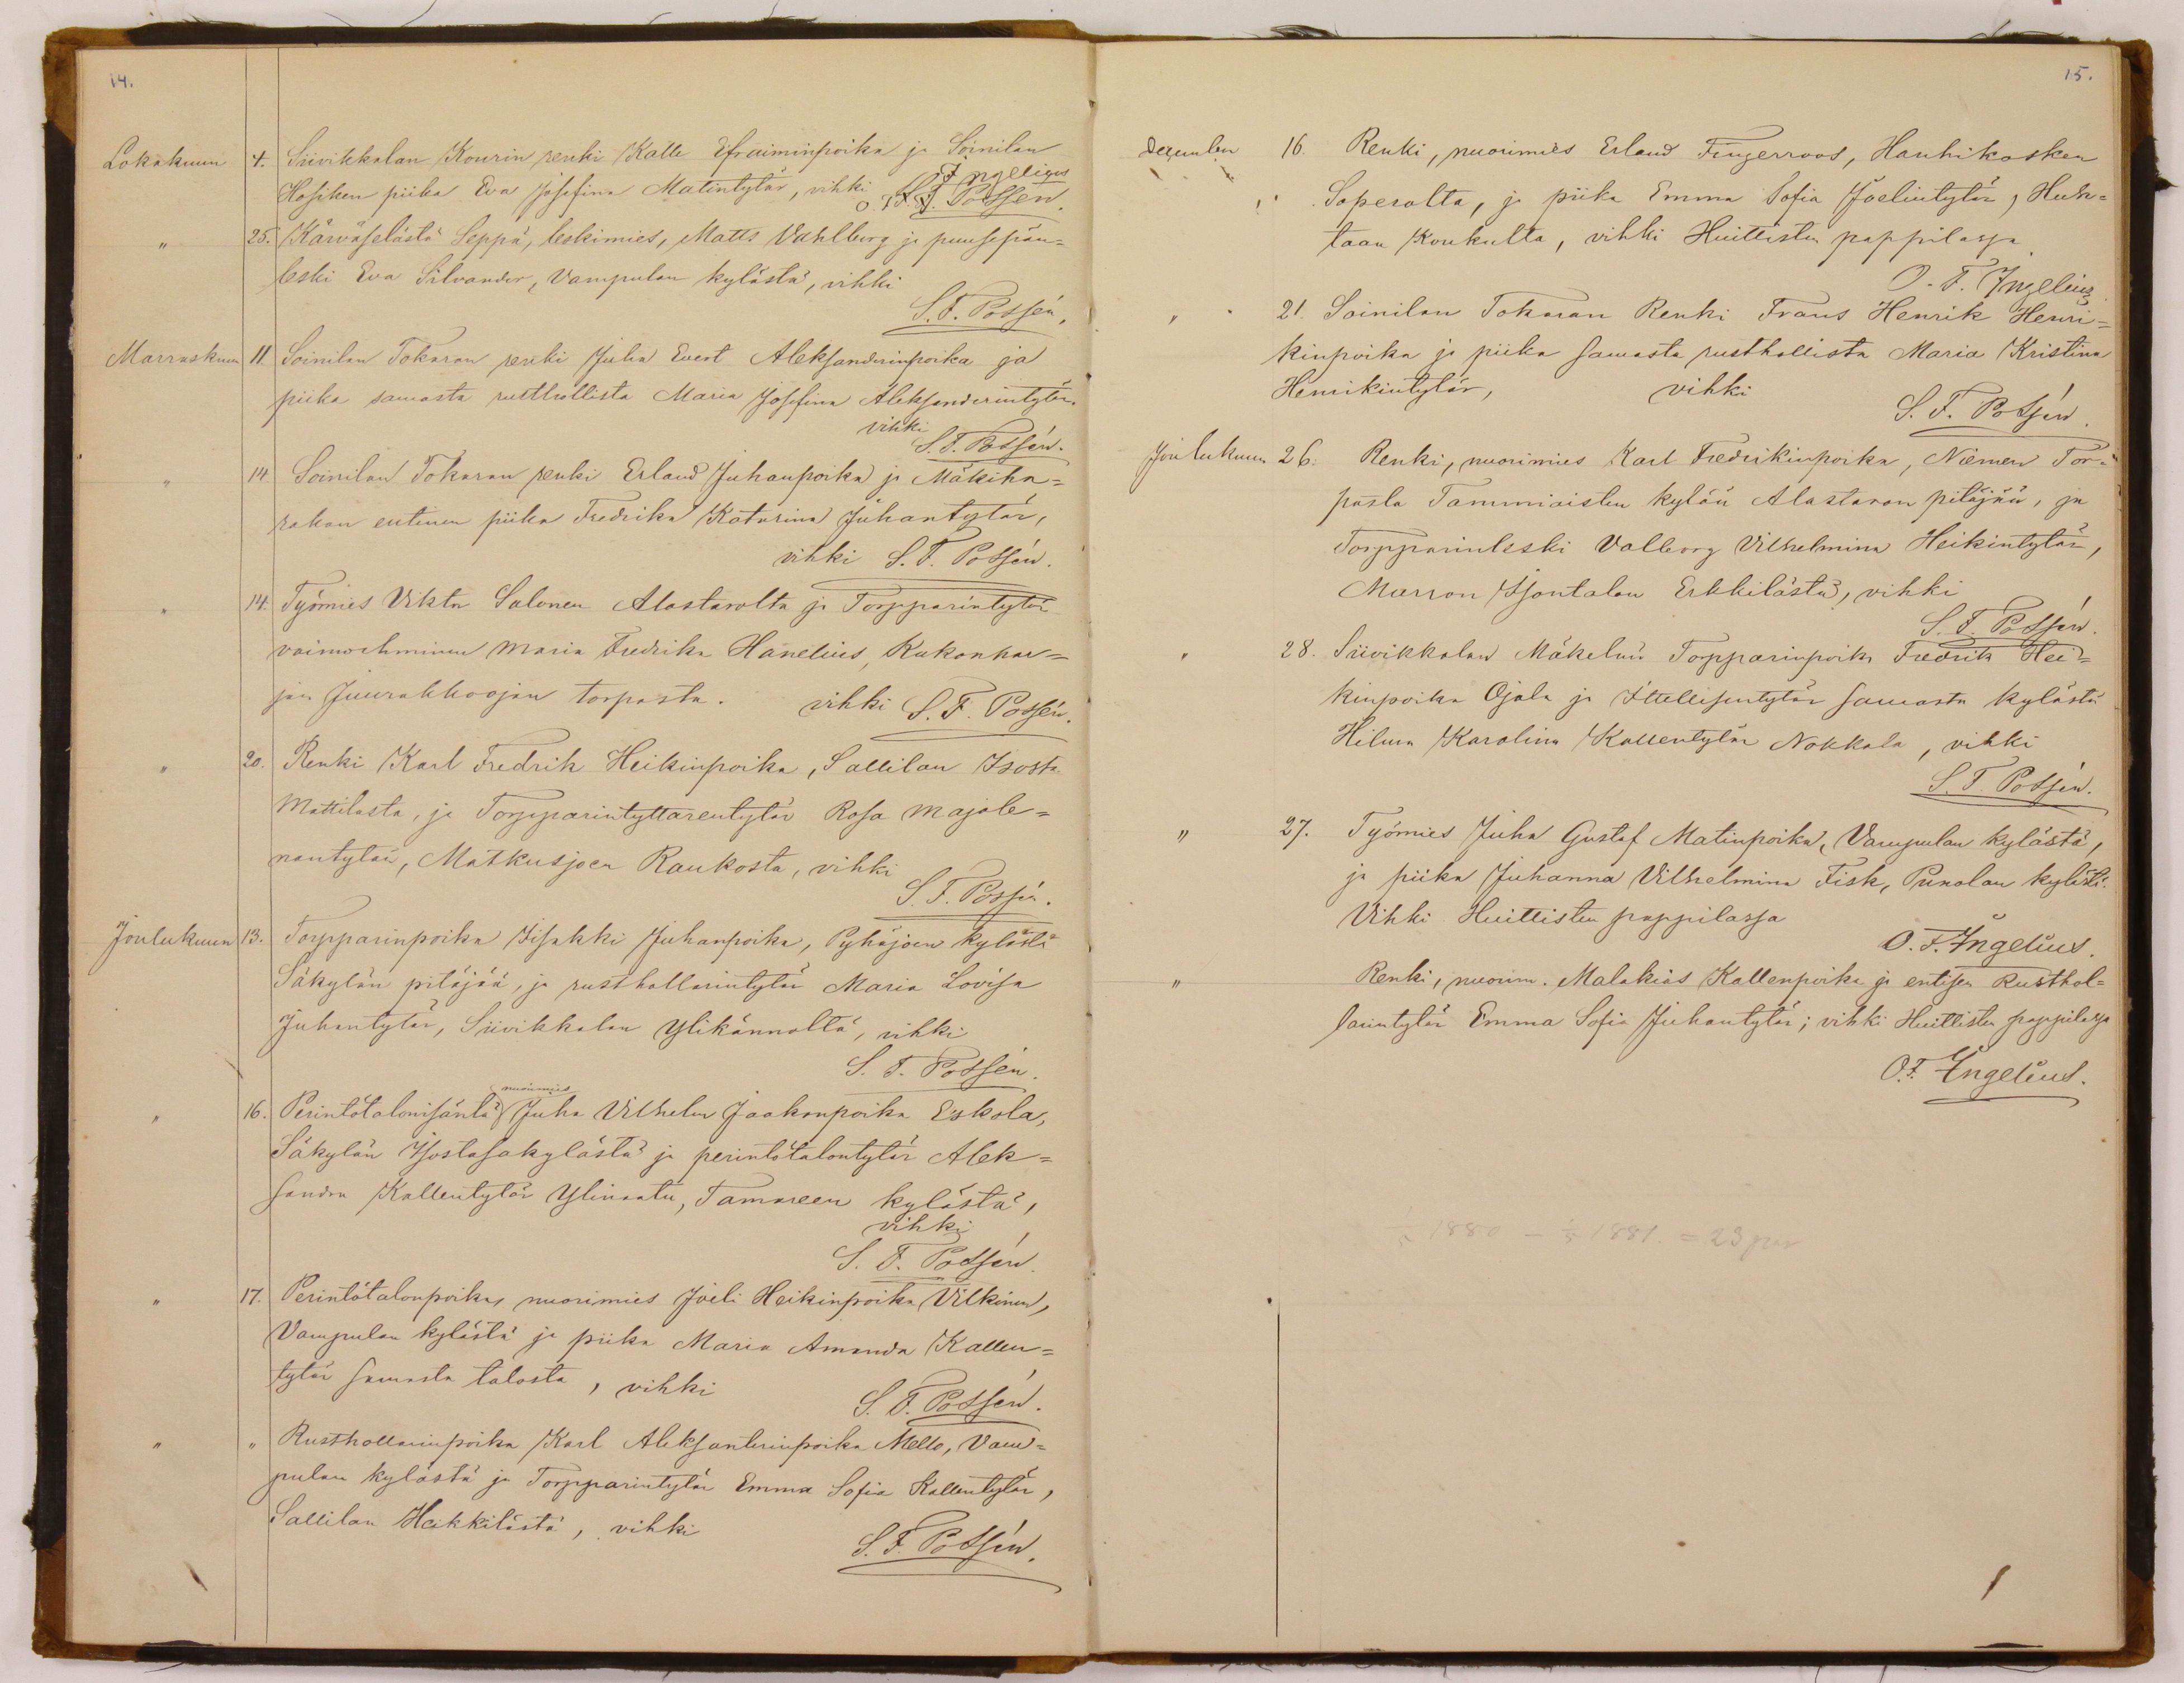 14.
Lokakuun 4. Siivikkalan Kourin renki Kalle Efraiminpoika ja Soinilan
Hosiken piika Eva Josefina Matintytär, vihki O. F. Ingelius
S. F. Possén.
" 25. Kärväselästä Seppä, leskimies, Matts Vahlberg ja puusepän=
leski Eva Silvander, Vampulan kylästä, vihki
S. F. Possén.
Marraskuun 11. Soinilan Tokaran renki Juha Evert Aleksanderinpoika ja
piika samasta rusthollista Maria Josefina Aleksanderintytär.
vihki
S. F. Possén.
" 14. Soinilan Tokaran renki Erland Juhanpoika ja Mäkiha=
rakan entinen piika Fredrika Katarina Juhantytär,
vihki S. F. Possén.
" 14. Työmies Viktor Salonen Alastarolta ja Torpparintytär
vaimoihminen Maria Fredrika Hanelius, Kukonhar=
jan Juurakkoojan torpasta. vihki S. F. Possén.
" 20. Renki Karl Fredrik Heikinpoika, Sallilan Isosta
Mattilasta, ja Torpparintyttärentytär Rosa Majale=
nantytär, Matkusjoen Raukosta, vihki
S. F. Possén.
Joulukuun 13. Torpparinpoika Iisakki Juhanpoika, Pyhäjoen kylästä
Säkylän pitäjää, ja rusthollarintytär Maria Lovisa
Juhantytär, Siivikkalan Ylikännoltä, vihki
S. F. Possén.
nuorimies
" 16. Perintötalonisäntä Juha Vilhelm Jaakonpoika Eskola,
Säkylän Isostasakylästä ja perintötalontytär Alek=
sandra Kallentytär Ylinaatu, Tamareen kylästä,
vihki
S. F. Possén.
" 17. Perintötalonpoika, nuorimies Joeli Heikinpoika Vilkinen,
Vampulan kylästä ja piika Maria Amanda Kallen=
tytär samasta talosta, vihki
S. F. Possén.
" " Rusthollarinpoika Karl Aleksanterinpoika Mello, Vam=
pulan kylästä ja Torpparintytär Emma Sofia Kallentytär,
Sallilan Heikkilästä, vihki
S. F. Possén.
15.
December 16. Renki, nuorimies Erland Fingerroos, Hanhikosken
Soperalta, ja piika Emma Sofia Joelintytär, Huh=
taan Koukulta, vihki Huittisten pappilassa
O. F. Ingelius
" 21. Soinilan Tokaran Renki Frans Henrik Henri=
kinpoika ja piika samasta rusthollista Maria Kristina
Henrikintytär, vihki
S. F. Possén.
Joulukuun 26. Renki, nuorimies Karl Fredrikinpoika, Niemen Tor=
pasta Tammiaisten kylää Alastaron pitäjää, ja
Torpparinleski Valborg Vilhelmina Heikintytär,
Marron Isontalon Erkkilästä, vihki
S. F. Possén.
" 28. Siivikkalan Mäkelän Torpparinpoika Fredrik Hei=
kinpoika Ojala ja Itsellisentytär samasta kylästä
Hilma Karolina Kallentytär Nokkala, vihki
S. F. Possén.
" 27. Työmies Juha Gustaf Matinpoika, Vampulan kylästä,
ja piika Juhanna Vilhelmina Fisk, Punolan kylästä.
Vihki Huittisten pappilassa
O. F. Ingelius.
" Renki, nuorim. Malakias Kallenpoika ja entisen Rusthol=
larintytär Emma Sofia Juhantytär; vihki Huittisten pappilassa
O. F. Ingelius.
1880 – 1881. = 23 par